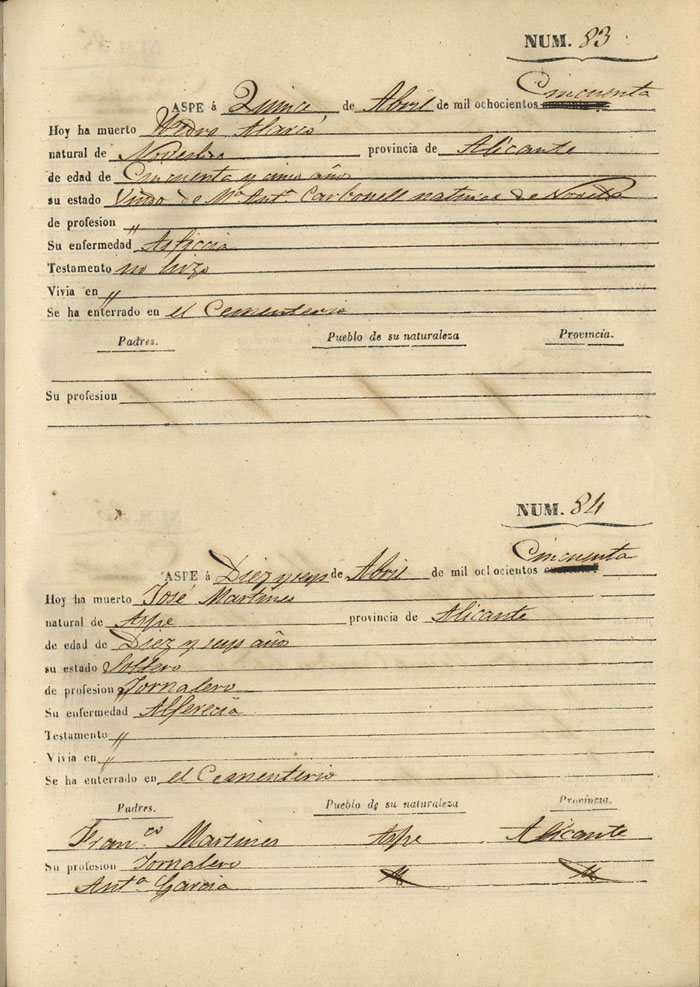 NUM. 83
ASPE á Quince de Abril de mil ochocientos Cincuenta
Hoy ha muerto Pedro Alarcó
natural de Novelda provincia de Alicante
de edad de Cincuenta y cinco años
su estado Viudo de Mª Antª Carbonell natural de Novelda
de profesion "
Su enfermedad Asficcia
Testamento no hizo
Vivia en "
Se ha enterrado en el Cementerio
Padres. Pueblo de su naturaleza Provincia.
Su profesion
NUM. 84
ASPE á Diez y seys de Abril de mil ochocientos Cincuenta
Hoy ha muerto José Martines
natural de Aspe provincia de Alicante
de edad de Diez y seys años
su estado Soltero
de profesion Jornalero
Su enfermedad Alferecia
Testamento "
Vivia en "
Se ha enterrado en el Cementerio
Padres. Pueblo de su naturaleza Provincia.
Fran.co Martines Aspe Alicante
Su profesion Jornalero
Antª Garcia